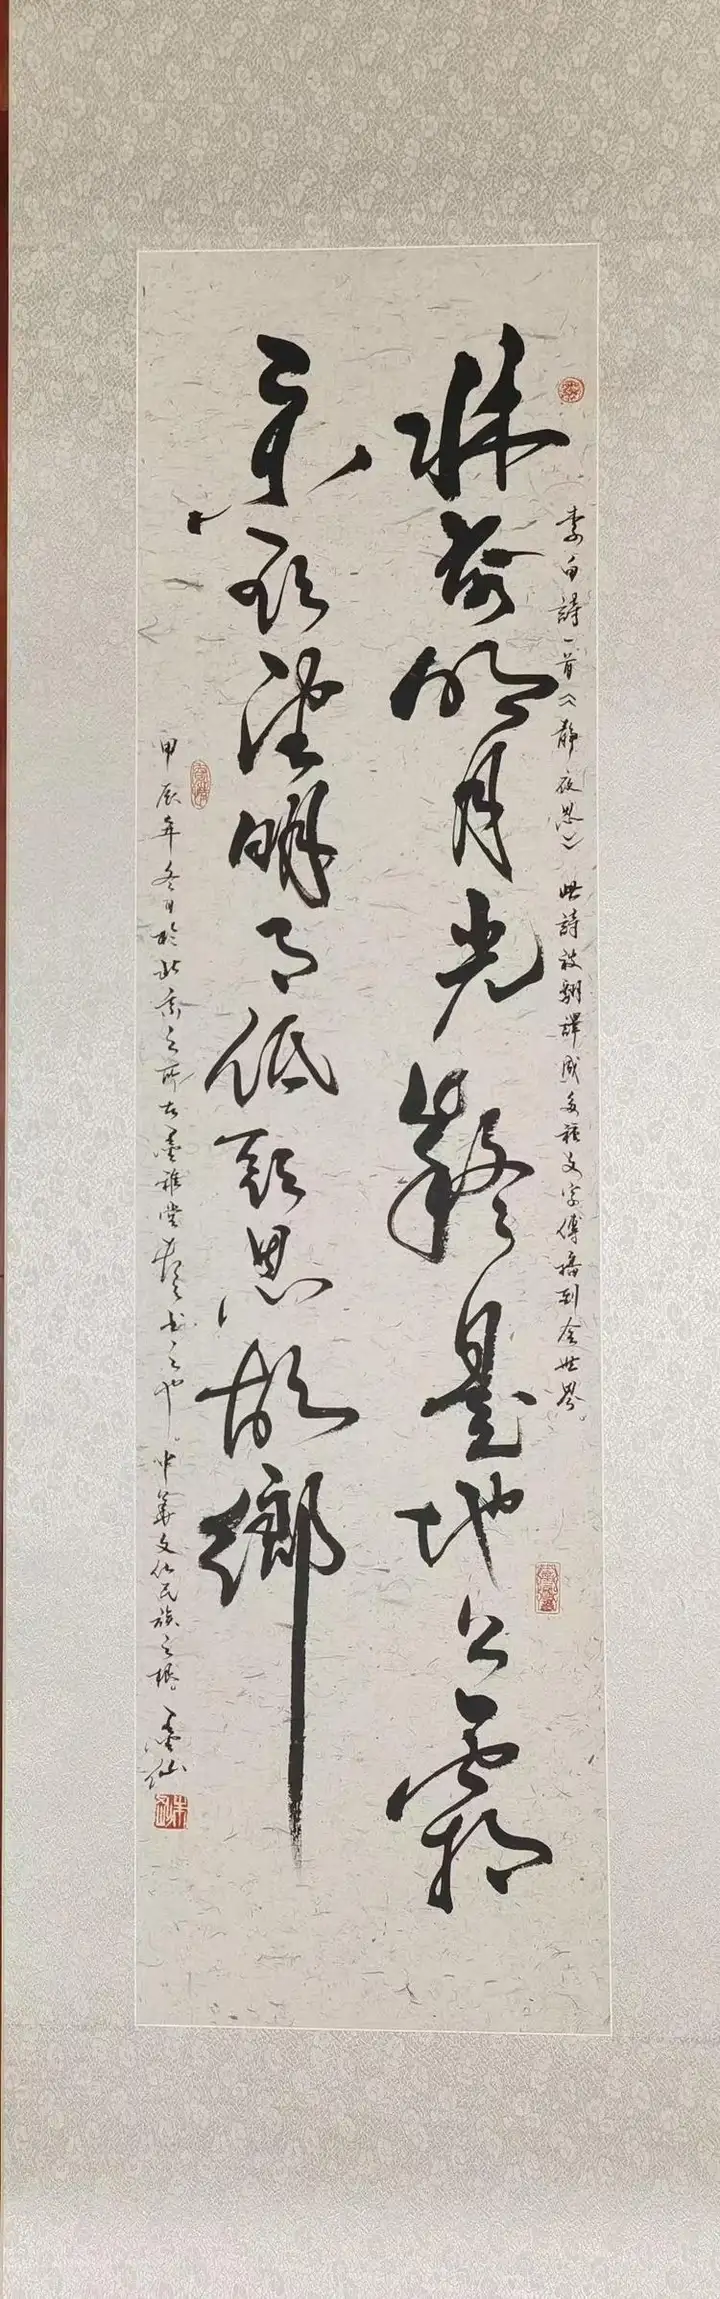 李白詩一首《静夜思》 此詩被翻譯成多種文字傳播到全世界
牀前明月光疑是地上霜
舉頭望明月低頭思故鄉
甲辰年冬月於北京之所古墨雅堂 書之也 中華文化民族之根 墨仙